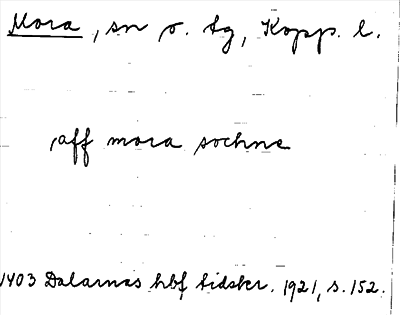 Mora, sn o. tg, Kopp. l.
aff mora sochne
1403 Dalarnas hbf tidskr. 1921, s. 152.